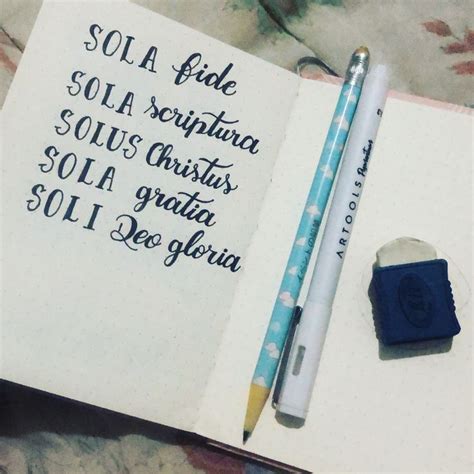 SOLA fide
SOLA scriptura
SOLUS Christus
SOLA gratia
SOLI Deo gloria
ARTOOLS